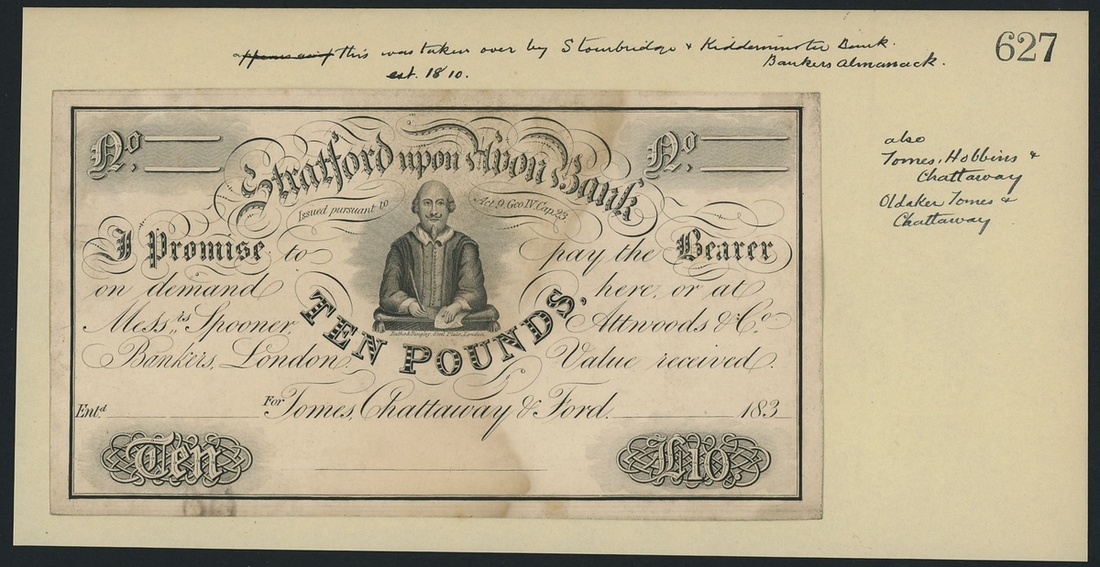 this was taken over by Stourbridge & Kidderminster Bank.
est. 1810.
Bankers Almanack.
627
also
Tomes, Hobbins &
Chattaway
Oldaker Tomes &
Chattaway
No.
No.
Stratford upon Avon Bank
Issued pursuant to Act 9, Geo IV Cap. 23
I Promise to pay the Bearer
on demand here, or at
Mess.rs Spooner Attwoods & Co.
TEN POUNDS,
Bankers, London. Value received.
Ent.d For Tomes, Chattaway & Ford. 183
Ten £10